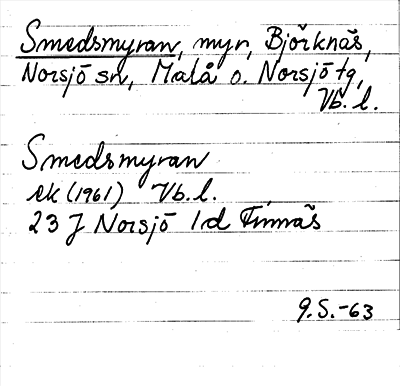 Smedsmyran, myr, Björknäs,
Norsjö sn, Malå o. Norsjö tg,
Vb. l.
Smedsmyran
ek (1961) Vb. l.
23 J Norsjö 1d Finnäs
9.5.-63